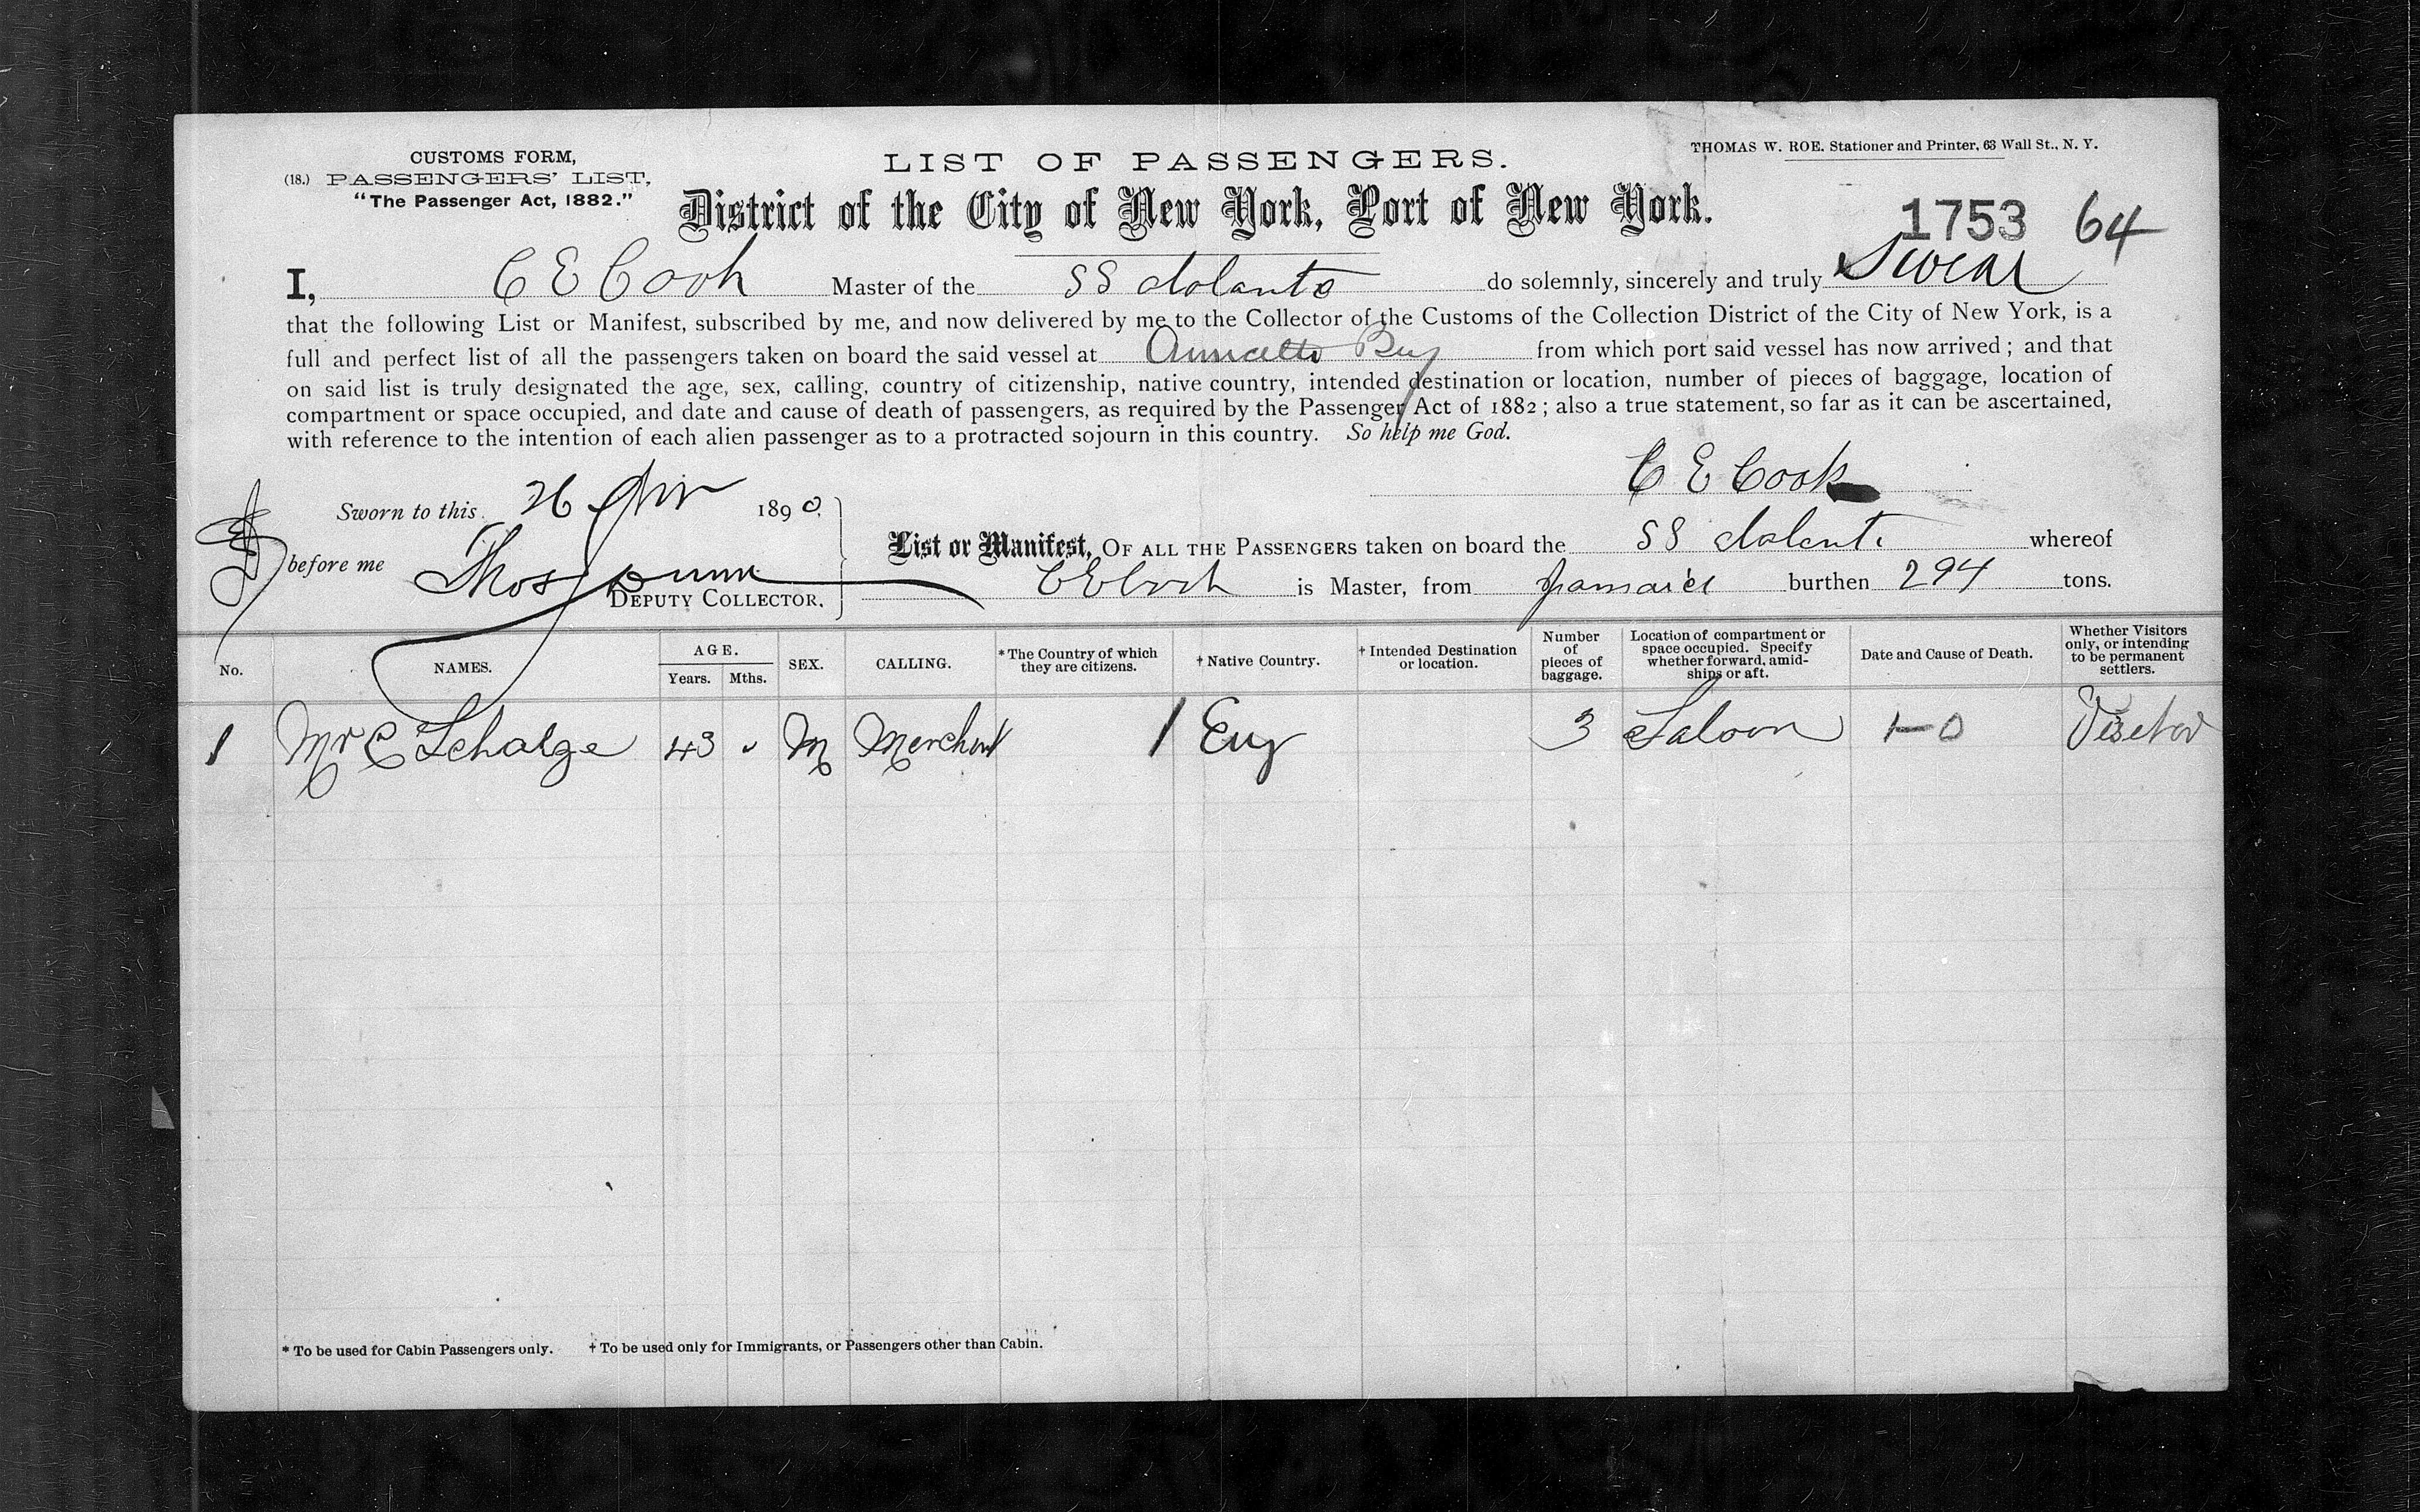 CUSTOMS FORM,
(18.) PASSENGERS' LIST,
"The Passenger Act, 1882."
LIST OF PASSENGERS.
THOMAS W. ROE. Stationer and Printer, 63 Wall St., N. Y.
District of the City of New York, Port of New York.
1753 64
I, C E Cook Master of the SS do solemnly, sincerely and truly Swear
that the following List or Manifest, subscribed by me, and now delivered by me to the Collector of the Customs of the Collection District of the City of New York, is a
full and perfect list of all the passengers taken on board the said vessel at from which port said vessel has now arrived; and that
on said list is truly designated the age, sex, calling, country of citizenship, native country, intended destination or location, number of pieces of baggage, location of
compartment or space occupied, and date and cause of death of passengers, as required by the Passenger Act of 1882; also a true statement, so far as it can be ascertained,
with reference to the intention of each alien passenger as to a protracted sojourn in this country. So help me God.
C E Cook
Sworn to this 26 1890.
before me Thos Dunn
DEPUTY COLLECTOR.
List or Manifest, OF ALL THE PASSENGERS taken on board the SS whereof
C E Cook is Master, from Jamaica burthen 294 tons.
No. NAMES. AGE. Years. Mths. SEX. CALLING. * The Country of which they are citizens. † Native Country. † Intended Destination or location. Number of pieces of baggage. Location of compartment or space occupied. Specify whether forward, amidships or aft. Date and Cause of Death. Whether Visitors only, or intending to be permanent settlers.
1 Mr C 43 M Merchant 1 Eng 3 Saloon 1-0 Visetor
* To be used for Cabin Passengers only. † To be used only for Immigrants, or Passengers other than Cabin.